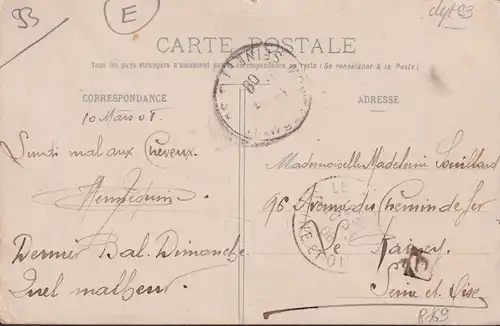 93
E
dept 93
CARTE POSTALE
Tous les pays étrangers n'acceptent pas la correspondance au recto (Se renseigner à la Poste)
CORRESPONDANCE
10 Mars 08.
Lundi mal aux Cheveux.
Dernier Bal. Dimanche
Quel malheur.
ADRESSE
Mademoiselle Madeleine
96 Avenue du Chemin de fer
Le Raincy
Seine et Oise